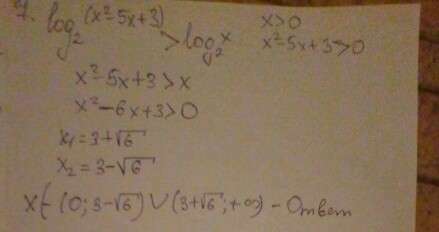 4. log₂(x²-5x+3) > log₂x   x>0
x²-5x+3>0
x²-5x+3>x
x²-6x+3>0
x₁=3+√6
x₂=3-√6
x∈(0; 3-√6)∪(3+√6; +∞) - Ответ